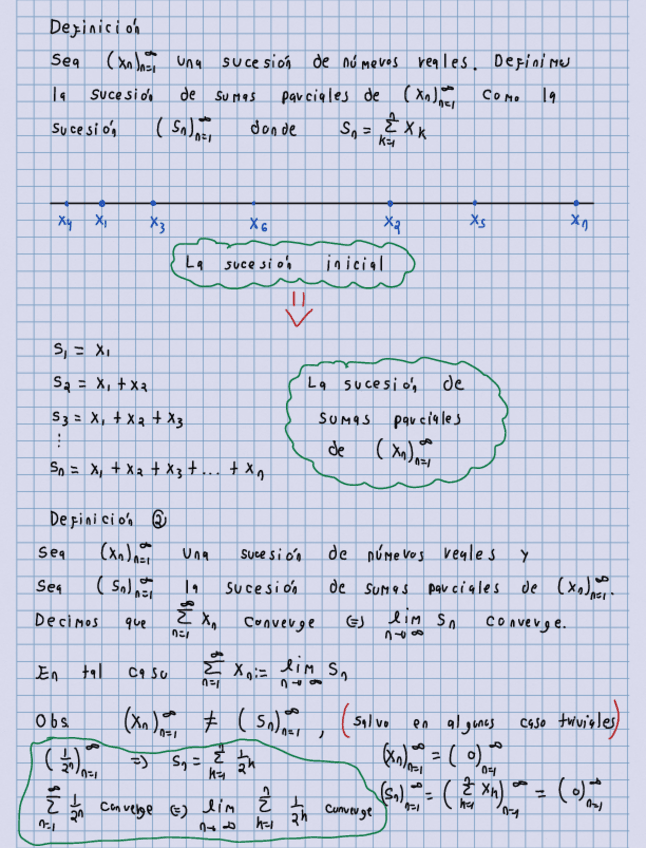 Definición
Sea (xn)_{n=1}^∞ una sucesión de números reales. Definimos
la sucesión de sumas parciales de (xn)_{n=1}^∞ como la
sucesión (Sn)_{n=1}^∞ donde Sn = ∑_{k=1}^n xk
x4 x1 x3 x6 x2 x5 xn
La sucesión inicial
⇓
S1 = x1
S2 = x1 + x2
S3 = x1 + x2 + x3
⋮
Sn = x1 + x2 + x3 + ... + xn
La sucesión de
sumas parciales
de (xn)_{n=1}^∞
Definición ②
Sea (xn)_{n=1}^∞ una sucesión de números reales y
Sea (Sn)_{n=1}^∞ la sucesión de sumas parciales de (xn)_{n=1}^∞.
Decimos que ∑_{n=1}^∞ xn converge ⇔ lim_{n→∞} Sn converge.
En tal caso ∑_{n=1}^∞ xn := lim_{n→∞} Sn
Obs (xn)_{n=1}^∞ ≠ (Sn)_{n=1}^∞, (salvo en algunos caso triviales)
(1/2^n)_{n=1}^∞ ⇒ Sn = ∑_{k=1}^n 1/2^k
∑_{n=1}^∞ 1/2^n converge ⇔ lim_{n→∞} ∑_{k=1}^n 1/2^k converge
(xn)_{n=1}^∞ = (0)_{n=1}^∞
(Sn)_{n=1}^∞ = (∑_{k=1}^n xk)_{n=1}^∞ = (0)_{n=1}^∞